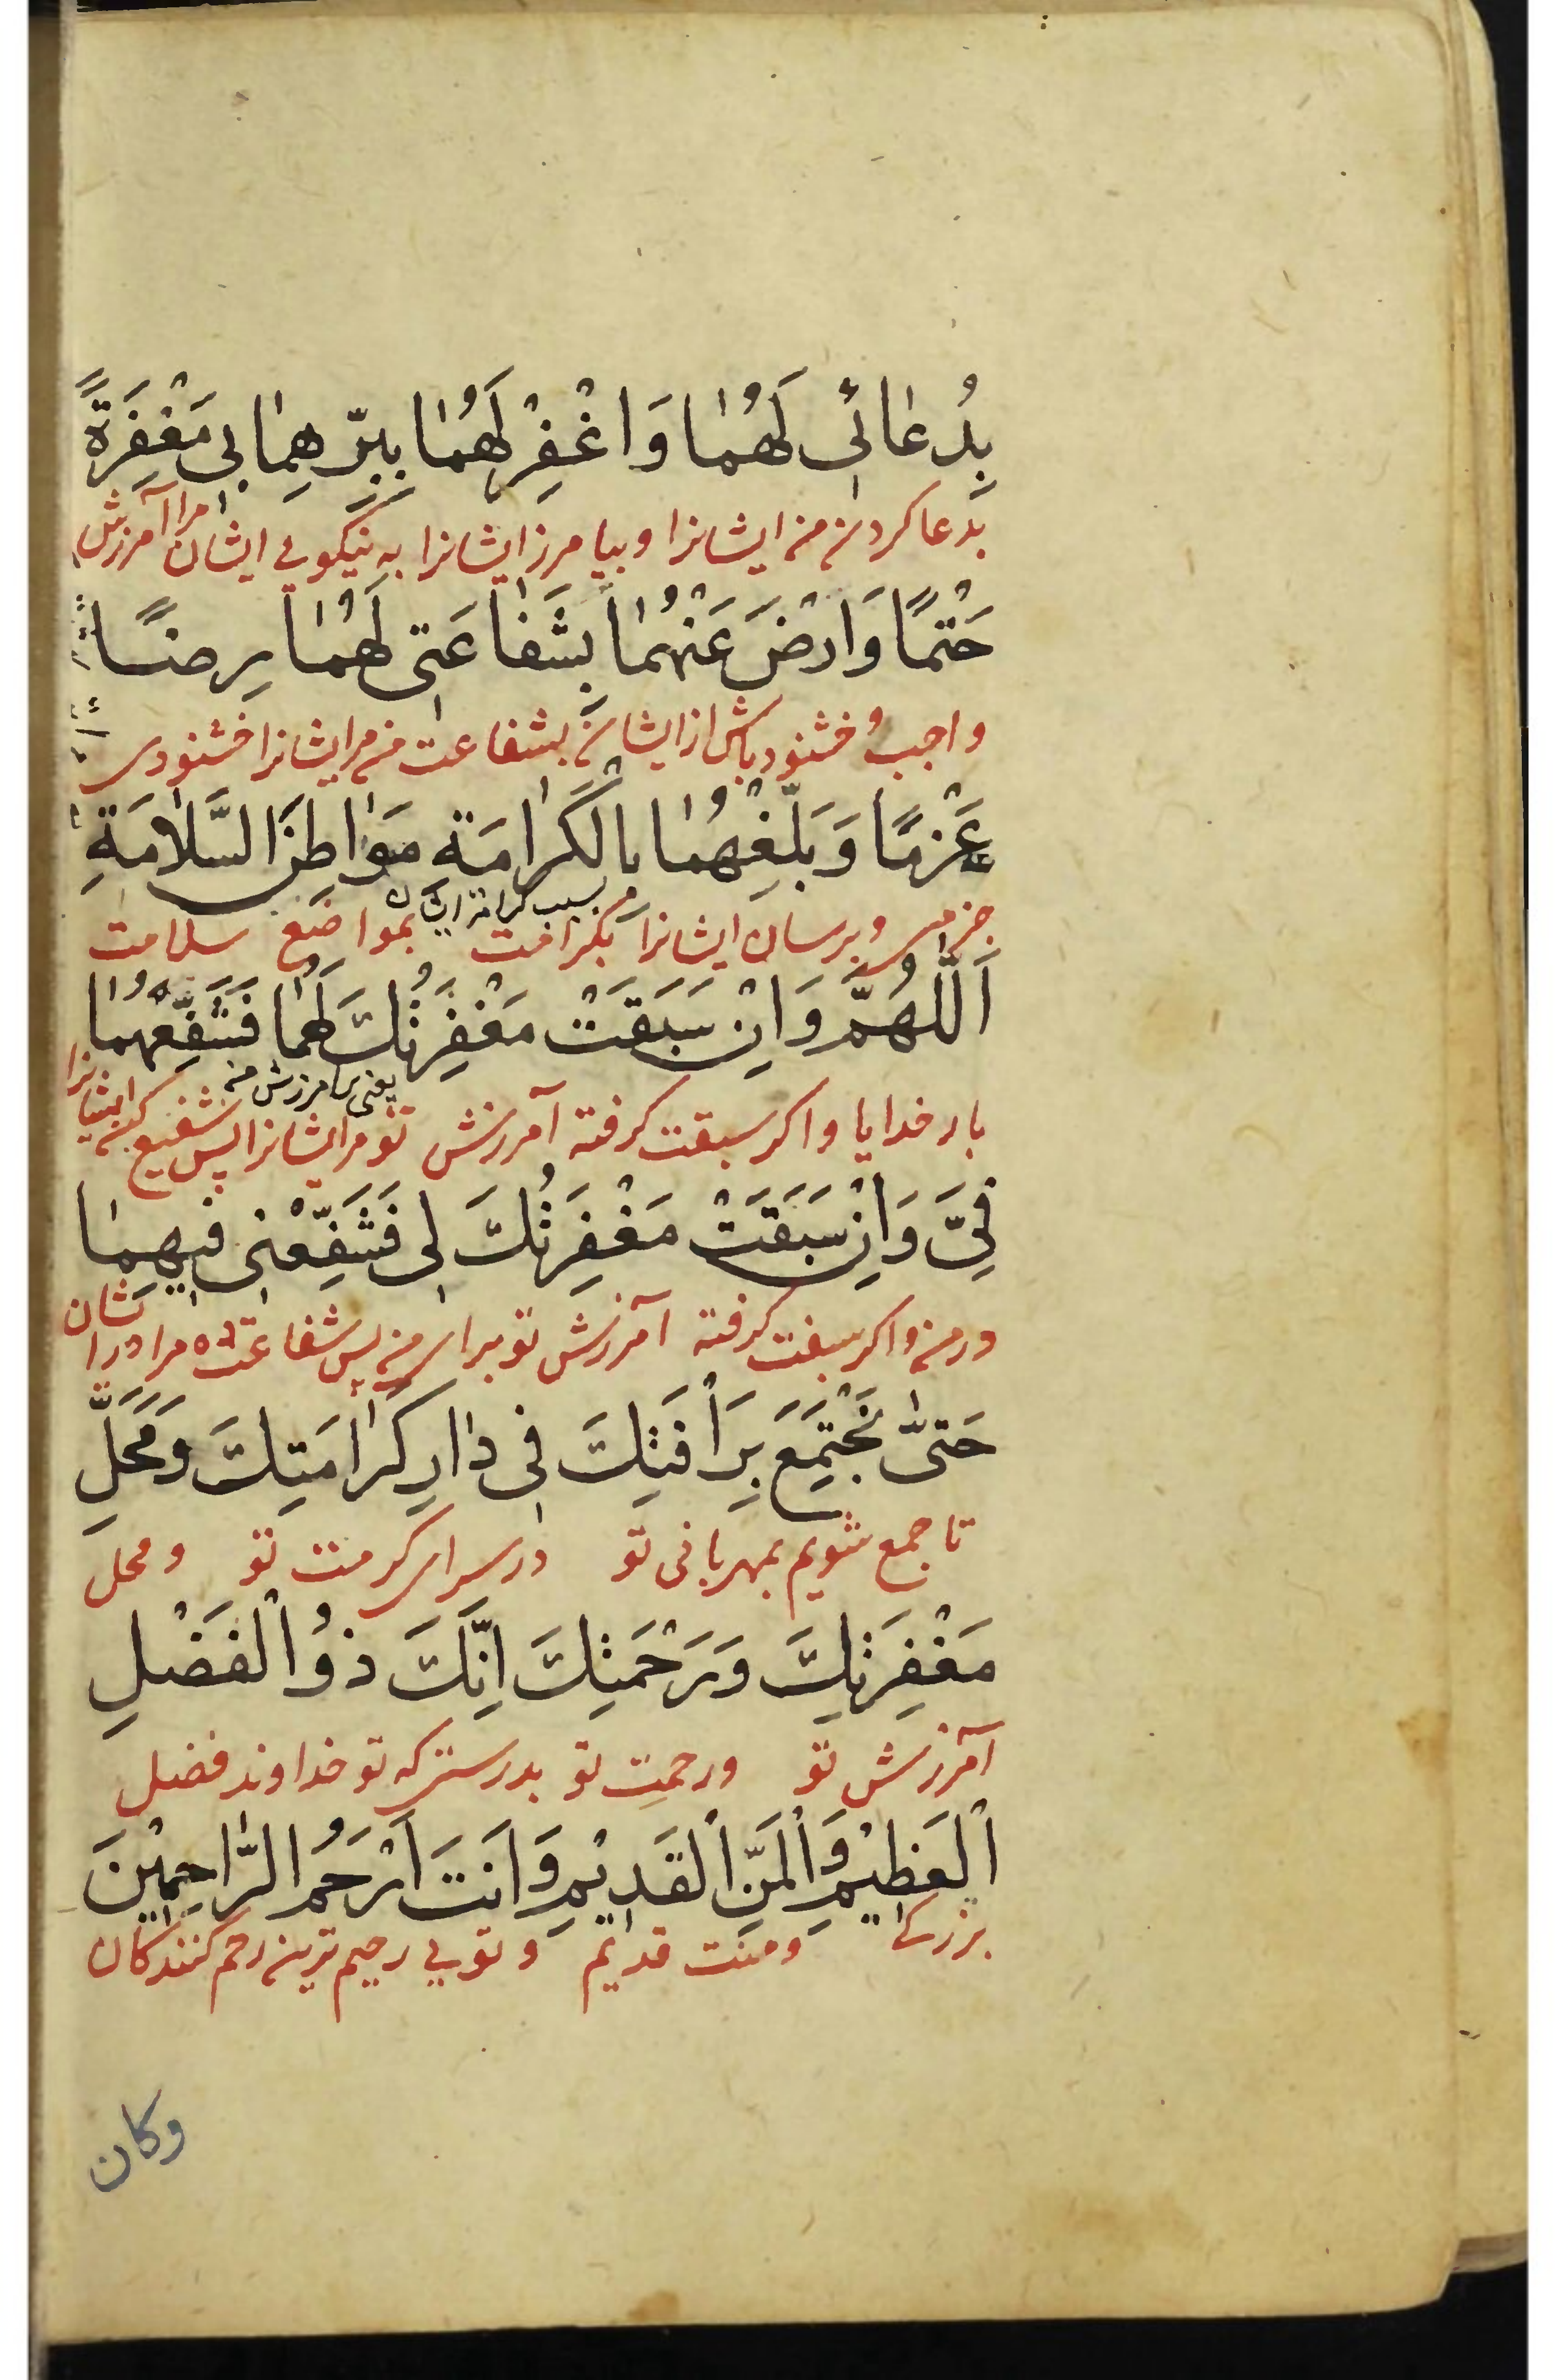 بِدُعٰائی لَهُمٰا وَاغْفِرْ لَهُمٰا بِبِرِّهِمٰا بی مَغْفِرَةً
بدعا کردن من ایشانرا و بیامرز ایشانرا به نیکویی ایشان مرا آمرزش
حَتْمًا وَارْضَ عَنْهُمٰا بِشَفٰاعَتی لَهُمٰا رِضًا
واجب و خشنود باش از ایشان بشفاعت من مر ایشانرا خشنودی
عَزْمًا وَبَلِّغْهُمٰا بِالْکَرٰامَةِ مَوٰاطِنَ السَّلاٰمَةِ
بسبب کرامة ایشان
جزمی و برسان ایشانرا بکرامت بمواضع سلامت
اَللّٰهُمَّ وَاِنْ سَبَقَتْ مَغْفِرَتُكَ لَهُمٰا فَشَفِّعْهُمٰا
یعنی بآمرزش من
بار خدایا و اکر سبقت کرفته آمرزش تو مر ایشانرا پس شفیع کن ایشانرا
فِیَّ وَاِنْ سَبَقَتْ مَغْفِرَتُكَ لی فَشَفِّعْنی فیهِمٰا
در من و اکر سبقت کرفته آمرزش تو برای من پس شفاعت ده مرا در ایشان
حَتیّٰ نَجْتَمِعَ بِرَأْفَتِكَ فی دٰارِ کَرٰامَتِكَ وَمَحَلِّ
تا جمع شویم بمهربانی تو در سرای کرمت تو و محل
مَغْفِرَتِكَ وَرَحْمَتِكَ اِنَّكَ ذُوالْفَضْلِ
آمرزش تو و رحمت تو بدرستی که تو خداوند فضل
الْعَظِیْمِ وَالْمَنِّ الْقَدِیْمِ وَاَنْتَ اَرْحَمُ الرّٰاحِمِیْنَ
بزرکی و منت قدیم و تویی رحیم ترین رحم کنندکان
وکان